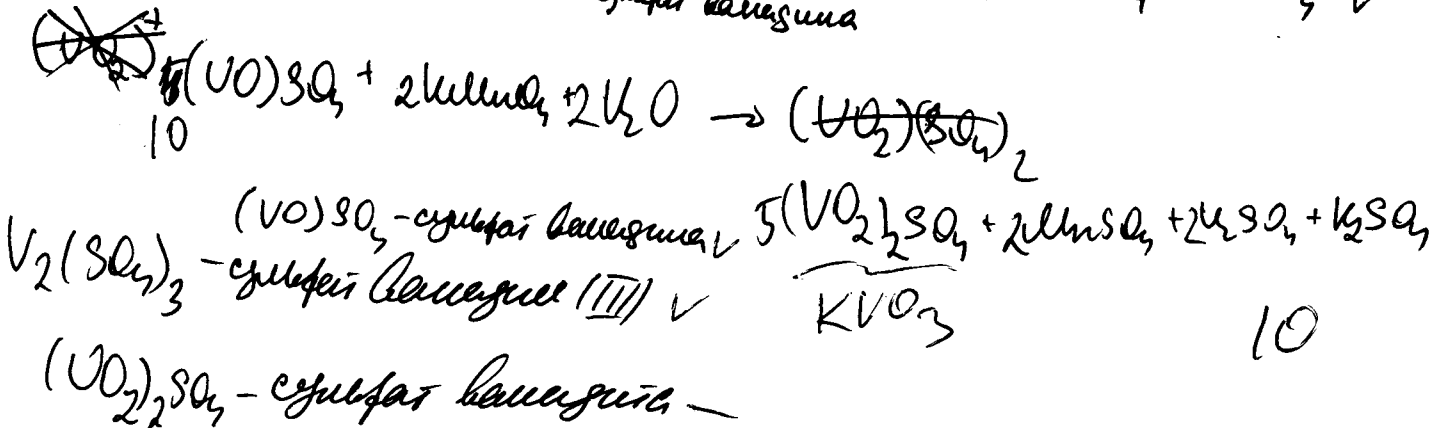 сульфат ванадила
10(VO)SO4 + 2KMnO4 + 2H2O → (VO2)(SO4)2
(VO)SO4 - сульфат ванадила ✓ 5(VO2)2SO4 + 2MnSO4 + 2H2SO4 + K2SO4
V2(SO4)3 - сульфат ванадия (III) ✓ KVO3
10
(VO2)2SO4 - сульфат —